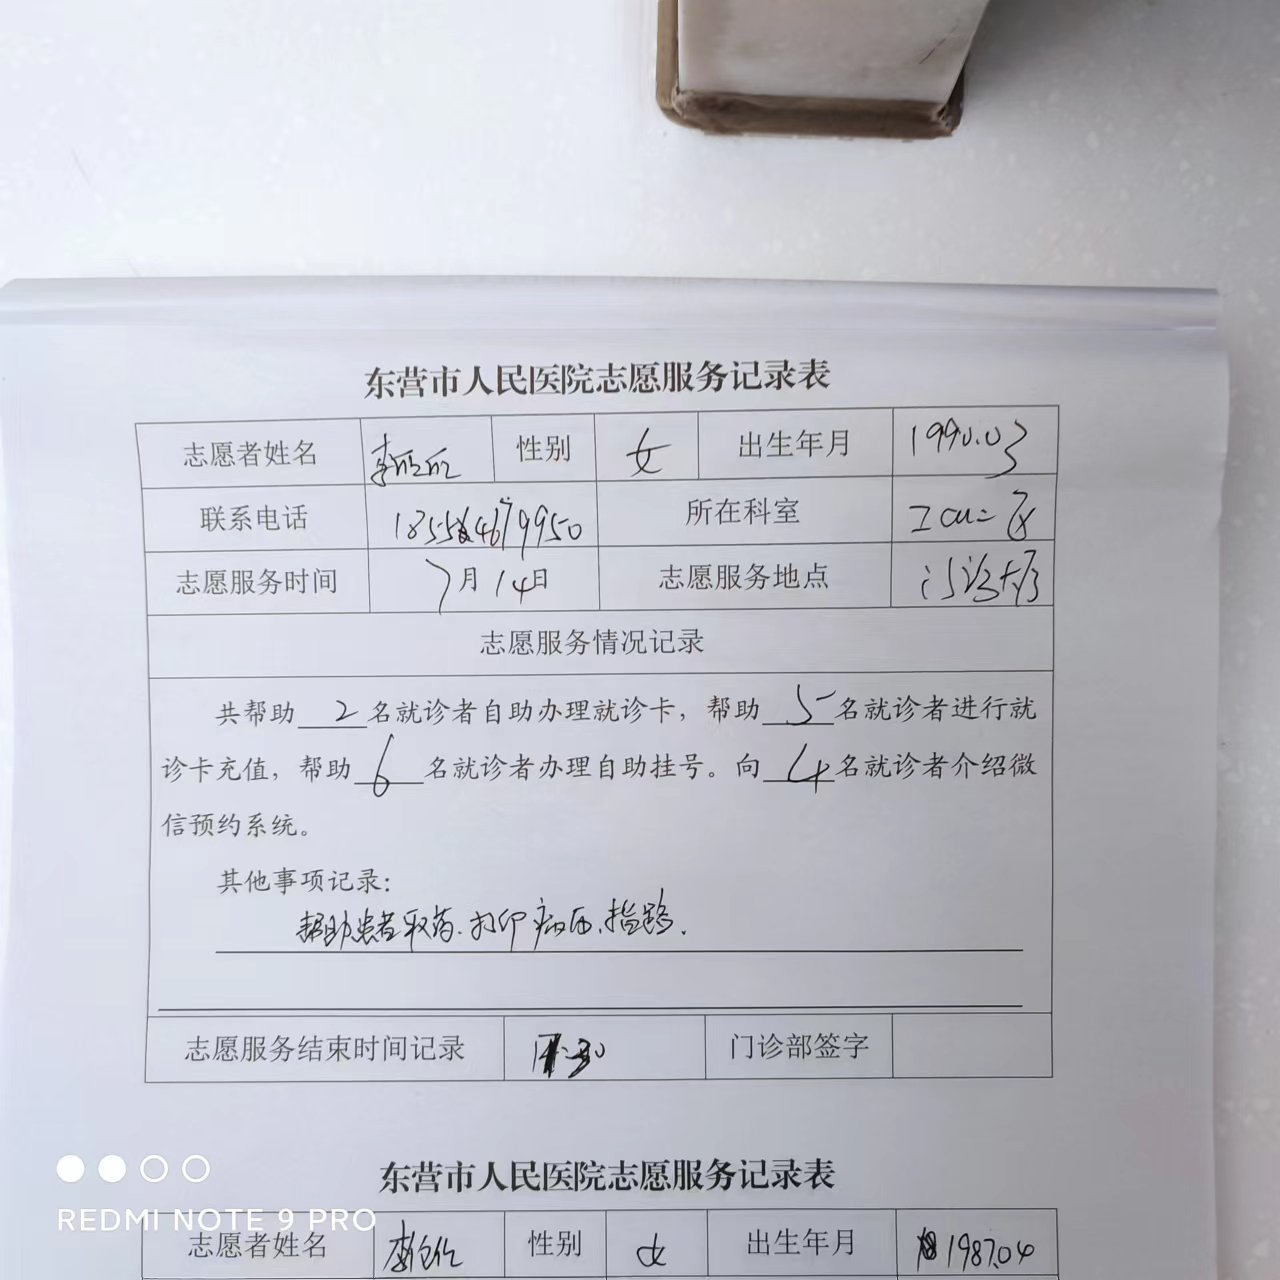 东营市人民医院志愿服务记录表
志愿者姓名 李 性别 女 出生年月 1990.03
联系电话 所在科室 ICU二区
志愿服务时间 7月14日 志愿服务地点 门诊大厅
志愿服务情况记录
共帮助 2 名就诊者自助办理就诊卡，帮助 5 名就诊者进行就
诊卡充值，帮助 6 名就诊者办理自助挂号。向 4 名就诊者介绍微
信预约系统。
其他事项记录：
帮助患者取药、打印病历、指路.
志愿服务结束时间记录 门诊部签字
东营市人民医院志愿服务记录表
REDMI NOTE 9 PRO
志愿者姓名 李 性别 女 出生年月 1987.04